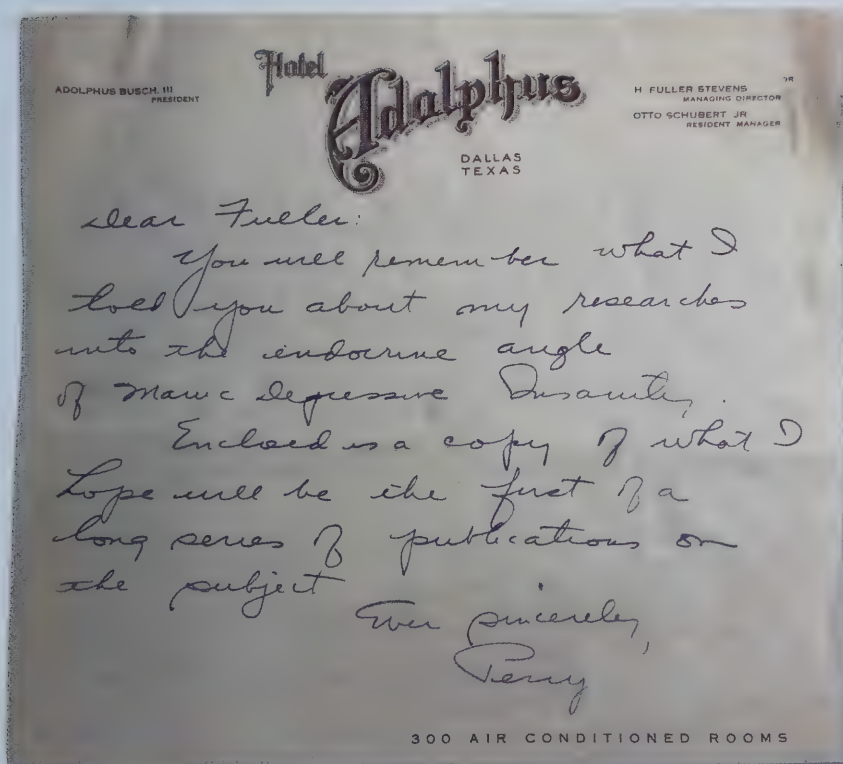 Hotel
Adolphus
ADOLPHUS BUSCH, III
PRESIDENT
H FULLER STEVENS
MANAGING DIRECTOR
OTTO SCHUBERT JR
RESIDENT MANAGER
DALLAS
TEXAS
Dear Fuller:
You will remember what I
told you about my researches
into the endocrine angle
of Manic Depressive Insanity.
Enclosed is a copy of what I
hope will be the first of a
long series of publications on
the subject
Ever sincerely,
Perry
300 AIR CONDITIONED ROOMS